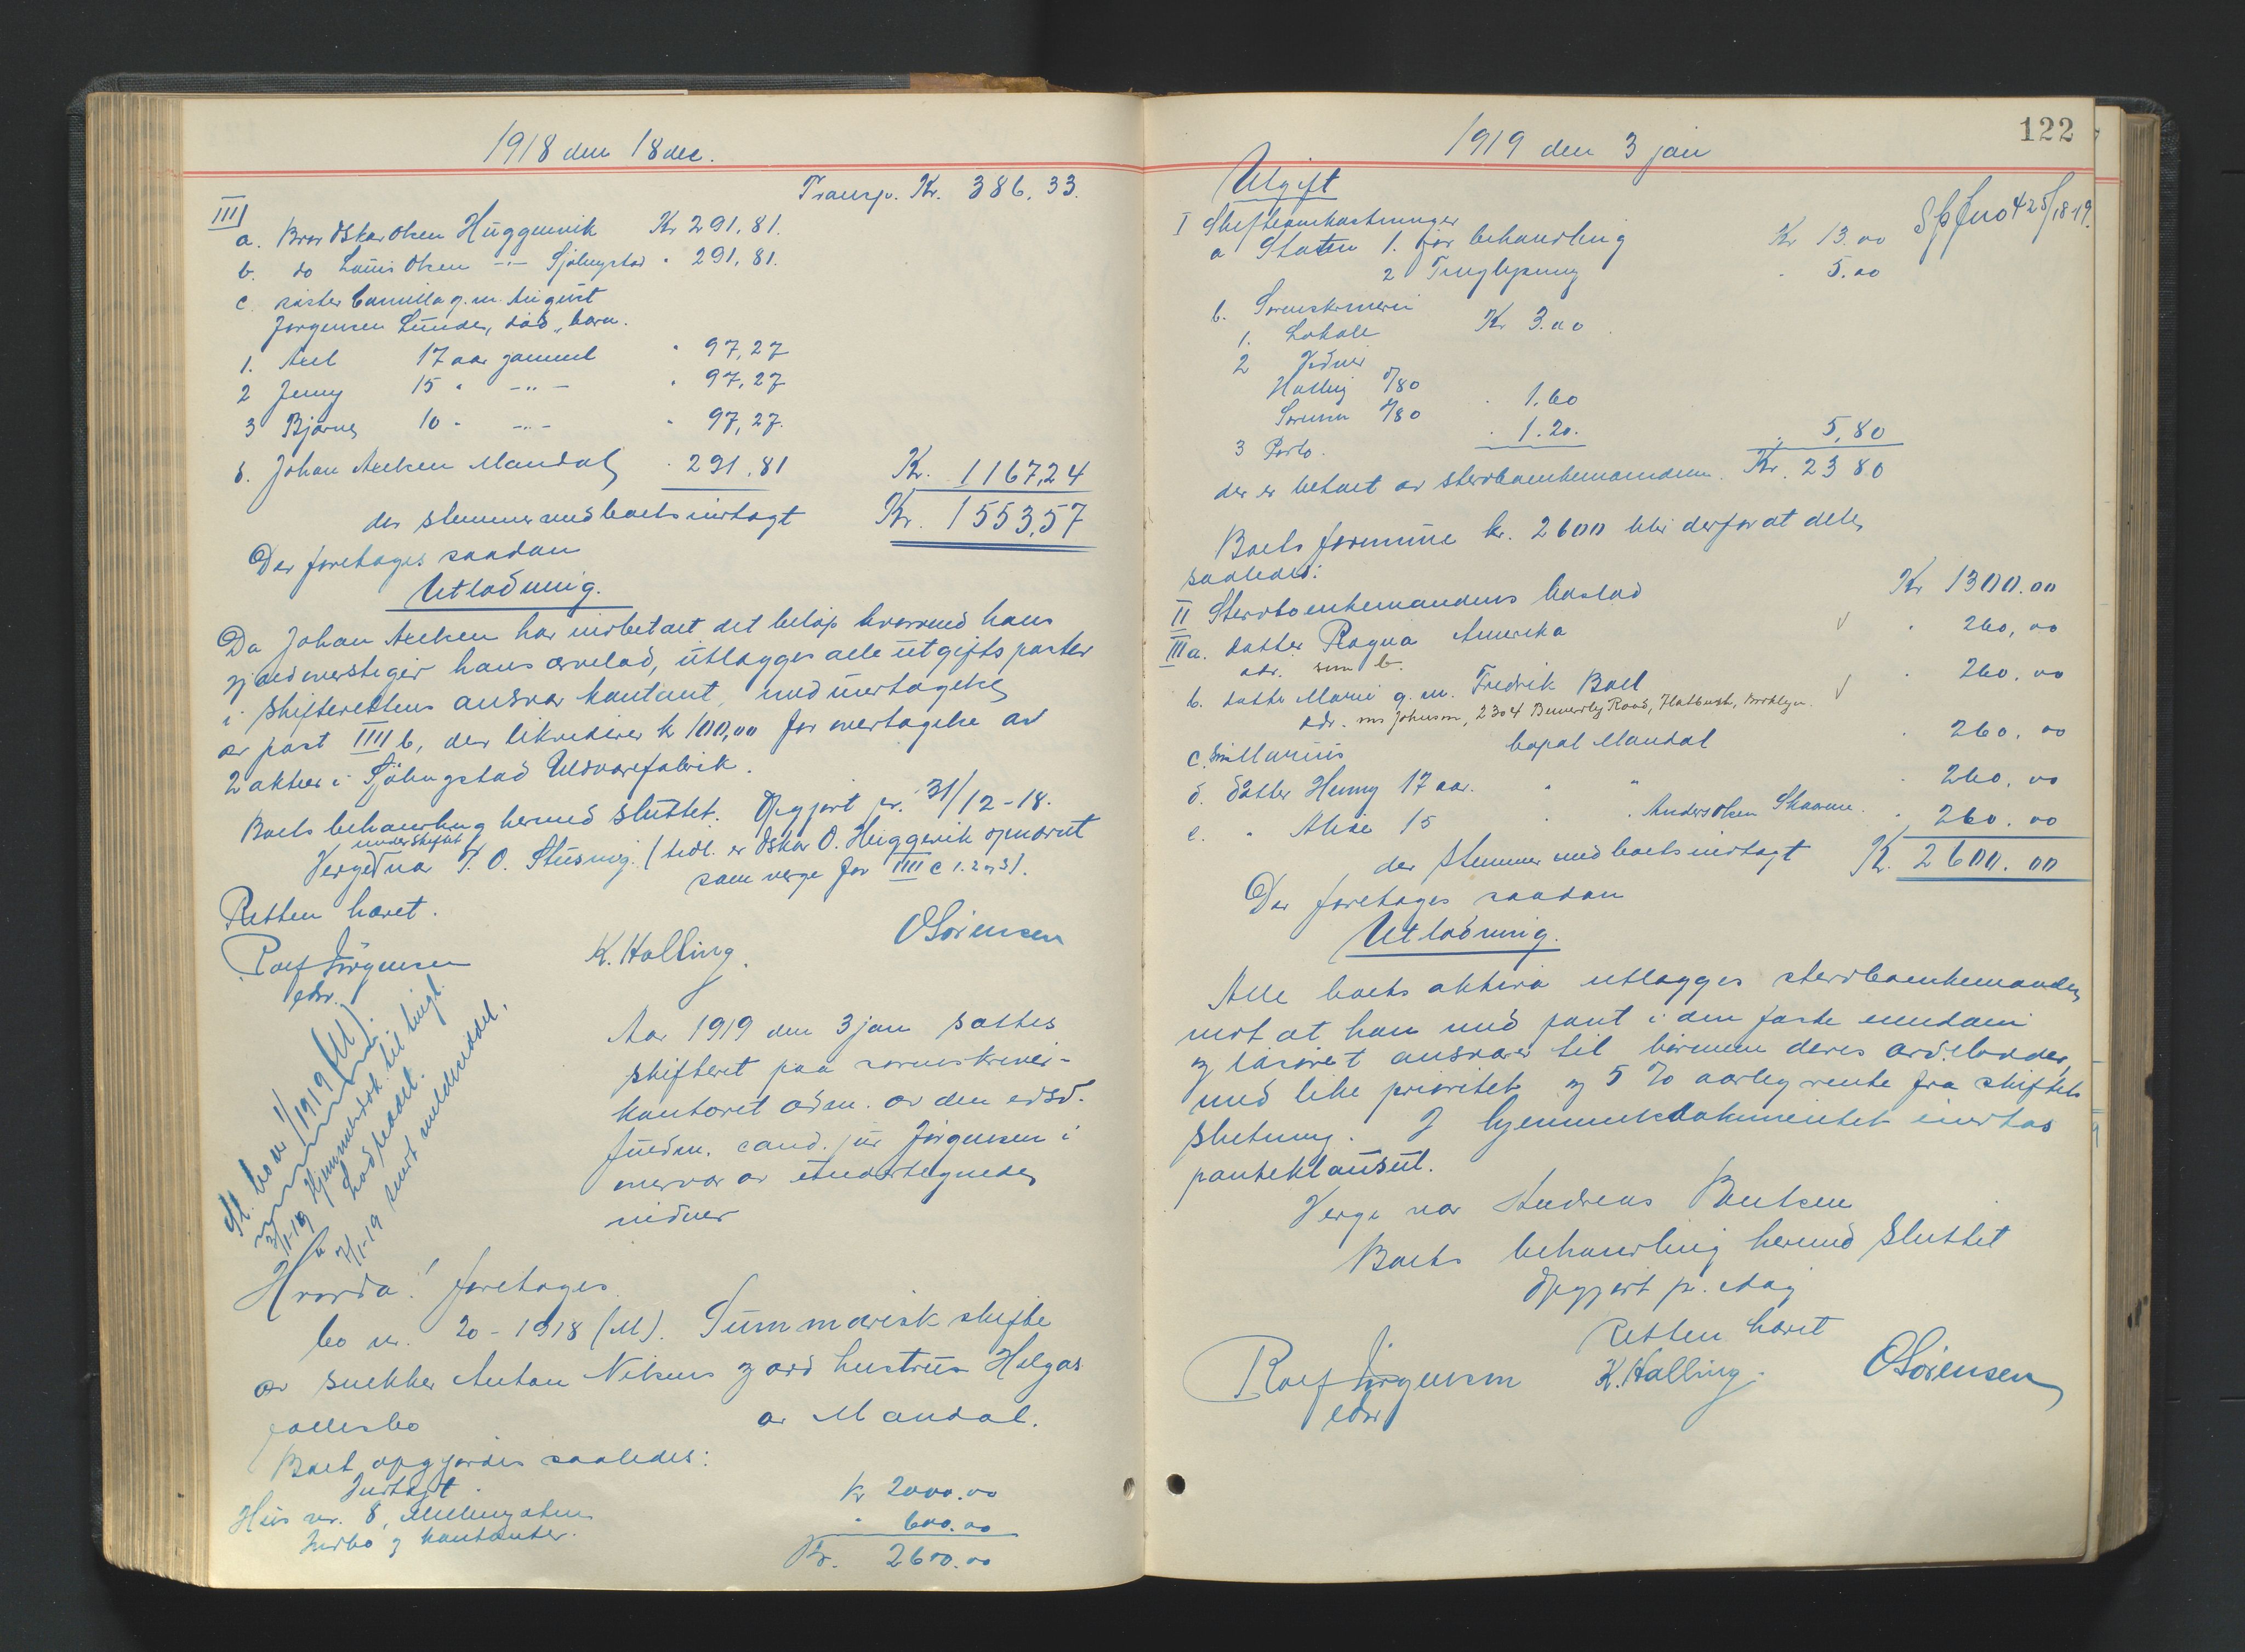 1918 den 18 dec.
Transp. Kr. 386.33.
III
a. Bror Oskar Olsen Huggenvik Kr 291.81.
b. do Louis Olsen -"- Sjølingstad " 291,81.
c. søster Camilla g. m. August
Jørgensen Lunde, død, barn.
1. Axel 17 aar gammel " 97,27
2 Jenny 15 " -"- " 97,27
3 Bjarne 10 " -"- " 97,27.
d. Johan Axelsen Mandal " 291.81 Kr. 1167,24
der stemmer med boets indtægt Kr. 1553,57
Der foretages saadan
Utlodning.
Da Johan Axelsen har indbetalt det beløp hvormed hans
gjæld overstiger hans arvelod, utlægges alle utgiftsposter
i skifterettens ansvar kontant, med undtagelse
av post IIII b, der likviderer kr 100,00 for overtagelse av
2 aktier i Sjølingstad Uldvarefabrik.
Boets behandling hermed sluttet. Opgjort pr. 31/12-18.
Verge under skiftet var T. O. Stusvig. (Midl. er Oskar O. Huggenvik opnævnt
som verge for IIII c 1. 2 og 3).
Retten hævet.
Rolf Jørgensen
edsv.
K. Halling.
O Sørensen
Aar 1919 den 3 jan sattes
skifteret paa sorenskriver-
kontoret adm. av den edsv.
fuldm. cand. jur Jørgensen i
overvær av undertegnede
vidner
3/1-19 Hjemmelsdok. til tingl.
Lodseddel.
7/1-19 sendt meldseddel.
Hvorda! foretages
bo nr. 20 - 1918 (M). Summarisk skifte
av snekker Anton Nilsens og avd hustrus Helgas
fællesbo av Mandal.
Boet opgjordes saaledes:
Indtægt.
Hus nr. 8, kr 2000.00
Indbo og kontanter. " 600.00
Kr. 2600.00
122
1919 den 3 jan
Utgift
I Skifteomkostninger
a Staten 1. for behandling Kr 13.00
2 Tinglysning " 5.00
b. Sorenskriveri
1. Lokale Kr 3.00
2 Vidner
Halling 0/80
Sørensen 0/80 " 1.60
3 Porto. " 1.20. " 5,80
der er betalt av stervboenkemanden. Kr. 23 80
Boets formue kr. 2600 blir derfor at dele
saaledes:
II Stervboenkemandens boslod Kr 1300.00
III a. datter Ragna Amerika " 260,00
adr. som b.
b. datter Marie g. m. Fredrik Boel " 260.00
adr. mrs Johnson, 2304 Beverley Road, Flatbush, Brooklyn.
c. søn Marius Mandal " 260.00
d. datter Henny 17 aar. " " " 260.00
e. " Alise 15 " " Anders Olsen Skaarne. " 260.00
der stemmer med boets indtægt Kr. 2600.00
Der foretages saadan
Utlodning.
Alle boets aktiva utlægges stervboenkemanden
mot at han med pant i den faste eiendom
og løsøret ansvarer til børnene deres arvelodder,
med like prioritet og 5 % aarlig rente fra skiftets
slutning. I hjemmelsdokumentet indtas
panteklausul.
Verge var Andreas Bentsen
Boets behandling hermed sluttet
Opgjort pr. idag
Retten hævet
Rolf Jørgensen
edsv
K. Halling.
O Sørensen